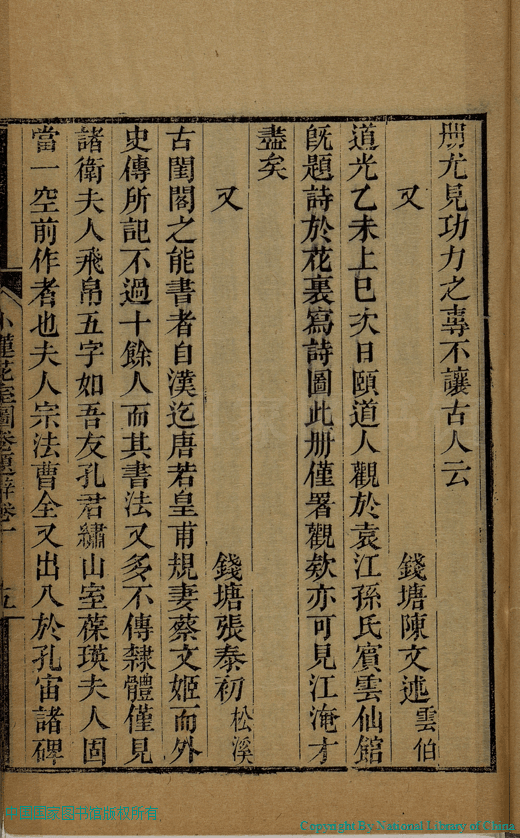 册尤見功力之專不讓古人云
又 錢塘陳文述雲伯
道光乙未上巳次日頤道人觀於袁江孫氏賓雲仙館
既題詩於花裏寫詩圖此册僅署觀欵亦可見江淹才
盡矣
又 錢塘張泰初松溪
古閨閣之能書者自漢迄唐若皇甫規妻蔡文姬而外
史傳所記不過十餘人而其書法又多不傳隸體僅見
諸衛夫人飛帛五字如吾友孔君繡山室葆瑛夫人固
當一空前作者也夫人宗法曹全又出入於孔宙諸碑
小蓮花室圖卷題辭卷一 五
Copyright By National Library of China